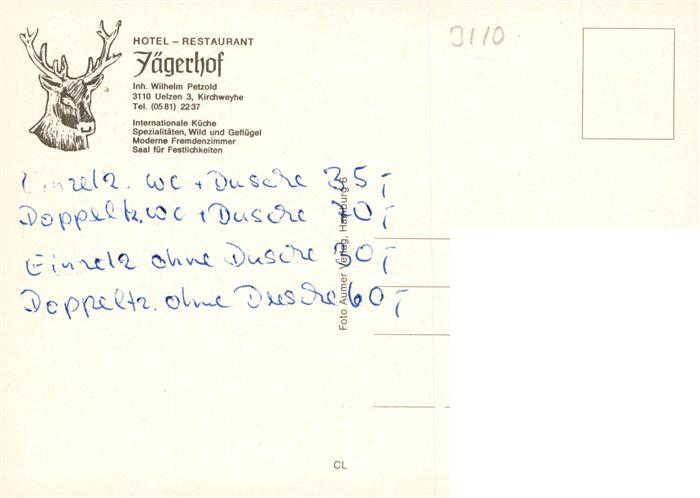 HOTEL – RESTAURANT
Jägerhof
Inh. Wilhelm Petzold
3110 Uelzen 3, Kirchweyhe
Tel. (05 81) 22 37
Internationale Küche
Spezialitäten, Wild und Geflügel
Moderne Fremdenzimmer
Saal für Festlichkeiten
3110
Einzelz. WC + Dusche 35,-
Doppeltz. WC + Dusche 70,-
Einzelz ohne Dusche 30,-
Doppeltz. ohne Dusche 60,-
Foto Aumer Verlag, Hamburg 6
CL